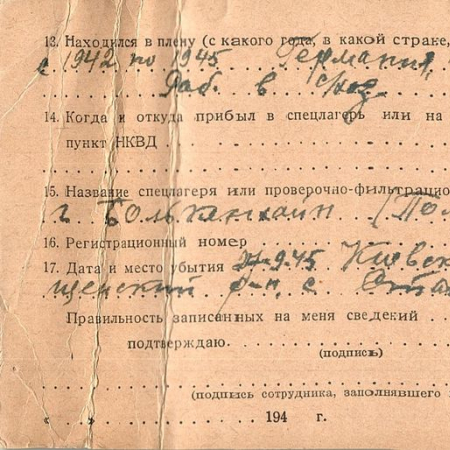 13. Находился в плену (с какого года, в какой стране,
с 1942 по 1945 Германия,
Раб. в
14. Когда и откуда прибыл в спецлагерь или на
пункт НКВД
15. Название спецлагеря или проверочно-фильтрацио
г. Болькенхайн (Пол
16. Регистрационный номер
17. Дата и место убытия 27-9.45 Киевск
щенский р-н, с.
Правильность записанных на меня сведений
подтверждаю.
(подпись)
(подпись сотрудника, заполнявшего
" " 194 г.